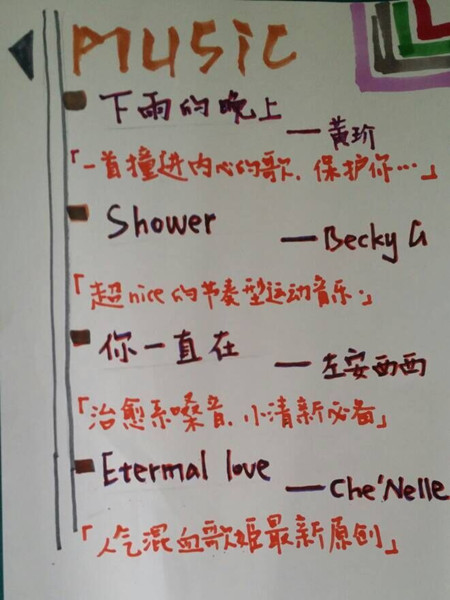 MUSIC
下雨的晚上
—黄玠
「一首撞进内心的歌，保护你…」
Shower
—Becky G
「超nice的节奏型运动音乐.」
你一直在
—左安西西
「治愈系嗓音，小清新必备」
Etermal love
—Che'Nelle
「人气混血歌姬最新原创」